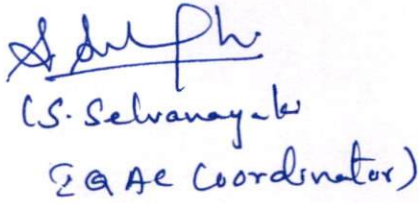 (S. Selvanayaki
IQAC Coordinator)